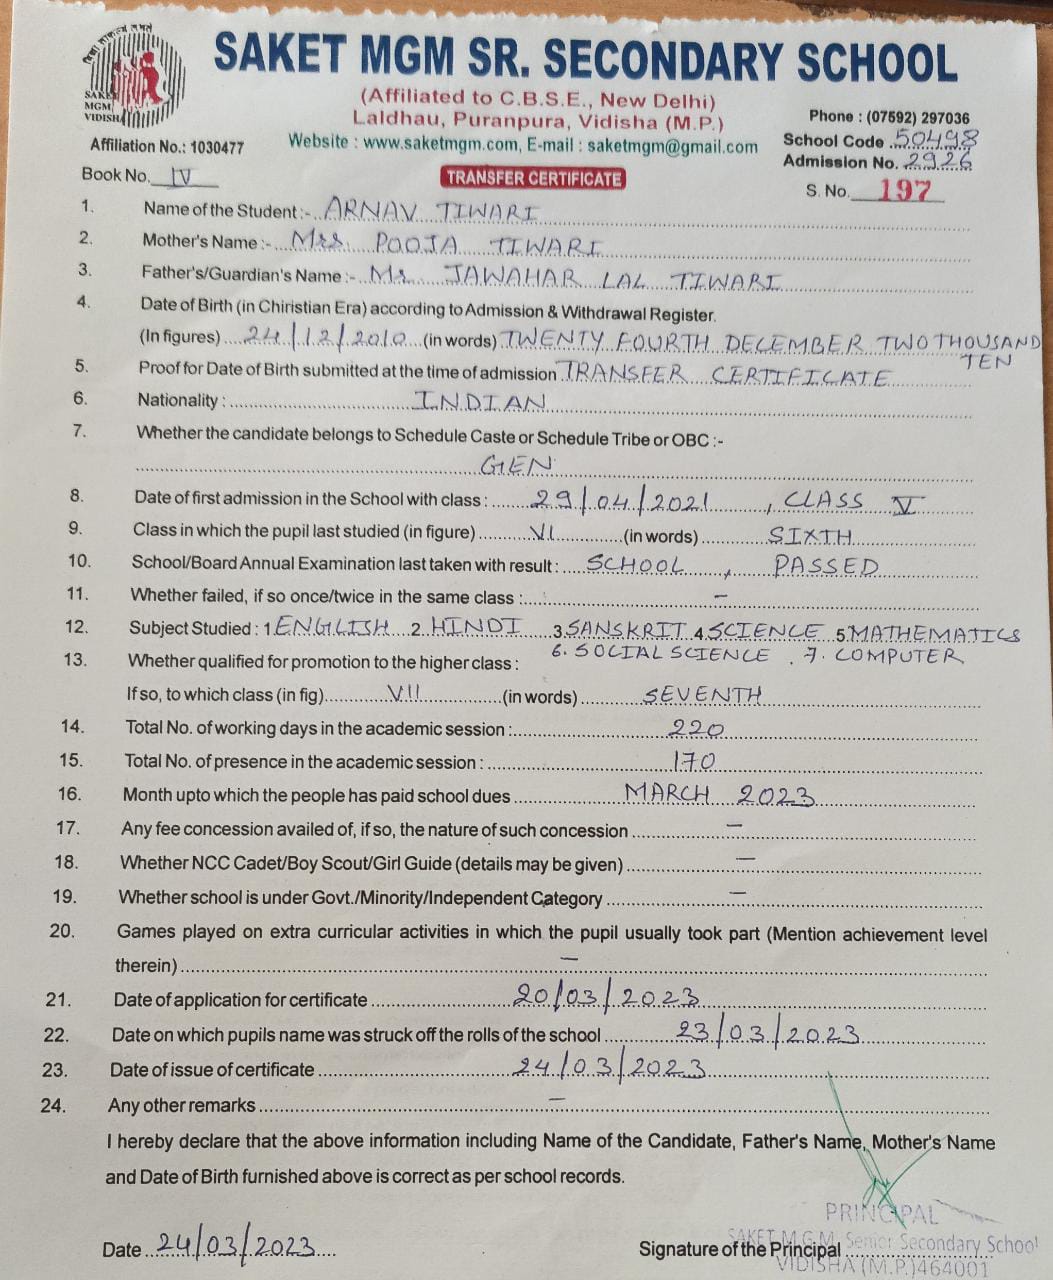 SAKET MGM SR. SECONDARY SCHOOL
SAKET
MGM
VIDISHA
(Affiliated to C.B.S.E., New Delhi)
Laldhau, Puranpura, Vidisha (M.P.)
Phone : (07592) 297036
Affiliation No.: 1030477
Website : www.saketmgm.com, E-mail : saketmgm@gmail.com
School Code 50498
Admission No. 2926
Book No. IV
TRANSFER CERTIFICATE
S. No. 197
1. Name of the Student :- ARNAV TIWARI
2. Mother's Name :- Mrs POOJA TIWARI
3. Father's/Guardian's Name :- Mr JAWAHAR LAL TIWARI
4. Date of Birth (in Chiristian Era) according to Admission & Withdrawal Register.
(In figures) 24/12/2010 (in words) TWENTY FOURTH DECEMBER TWO THOUSAND
TEN
5. Proof for Date of Birth submitted at the time of admission TRANSFER CERTIFICATE
6. Nationality : INDIAN
7. Whether the candidate belongs to Schedule Caste or Schedule Tribe or OBC :-
GEN
8. Date of first admission in the School with class : 29/04/2021, CLASS V
9. Class in which the pupil last studied (in figure) VI (in words) SIXTH
10. School/Board Annual Examination last taken with result : SCHOOL, PASSED
11. Whether failed, if so once/twice in the same class : –
12. Subject Studied : 1 ENGLISH 2. HINDI 3. SANSKRIT 4. SCIENCE 5. MATHEMATICS
6. SOCIAL SCIENCE . 7. COMPUTER
13. Whether qualified for promotion to the higher class :
If so, to which class (in fig) VII (in words) SEVENTH
14. Total No. of working days in the academic session : 220
15. Total No. of presence in the academic session : 170
16. Month upto which the people has paid school dues MARCH 2023
17. Any fee concession availed of, if so, the nature of such concession –
18. Whether NCC Cadet/Boy Scout/Girl Guide (details may be given) –
19. Whether school is under Govt./Minority/Independent Category –
20. Games played on extra curricular activities in which the pupil usually took part (Mention achievement level
therein) –
21. Date of application for certificate 20/03/2023
22. Date on which pupils name was struck off the rolls of the school 23/03/2023
23. Date of issue of certificate 24/03/2023
24. Any other remarks –
I hereby declare that the above information including Name of the Candidate, Father's Name, Mother's Name
and Date of Birth furnished above is correct as per school records.
PRINCIPAL
SAKET M.G.M. Senior Secondary School
Date 24/03/2023 Signature of the Principal
VIDISHA (M.P.) 464001